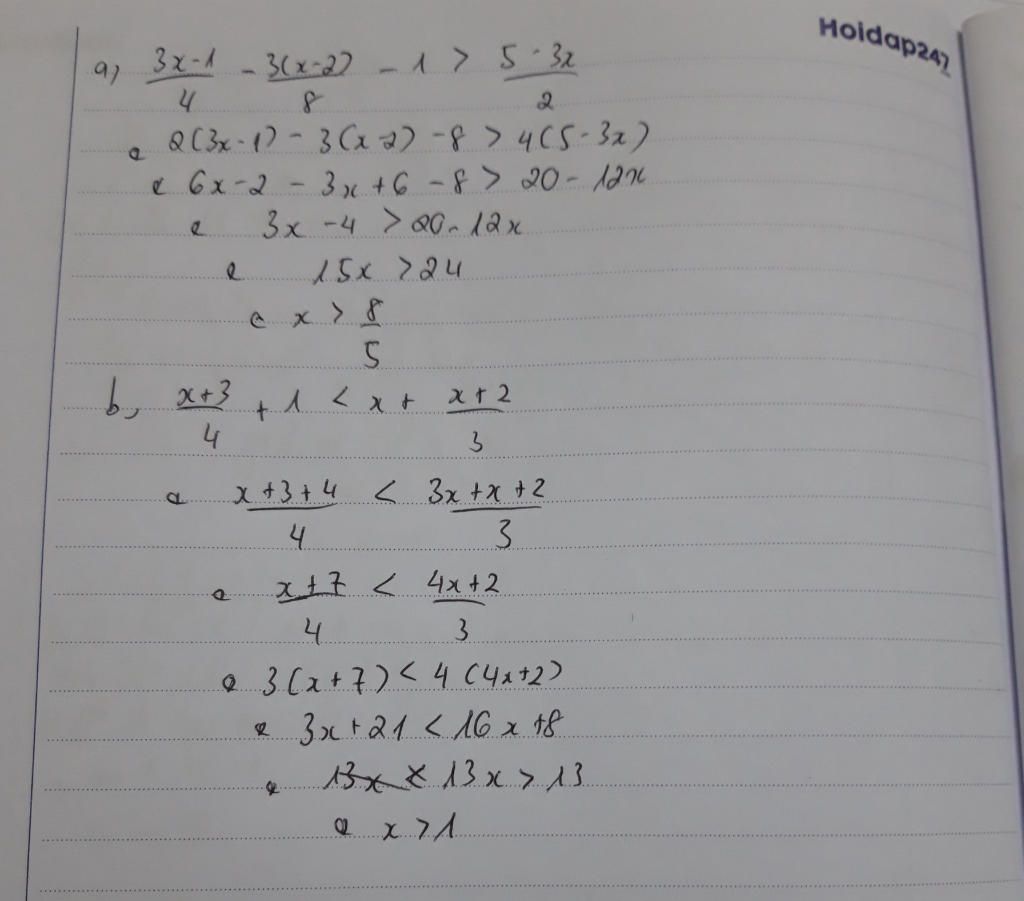 Hoidap247
a) (3x-1)/4 - 3(x-2)/8 - 1 > (5-3x)/2
2(3x-1) - 3(x-2) - 8 > 4(5-3x)
6x-2 - 3x+6 - 8 > 20-12x
3x-4 > 20-12x
15x > 24
x > 8/5
b, (x+3)/4 + 1 < x + (x+2)/3
(x+3+4)/4 < (3x+x+2)/3
(x+7)/4 < (4x+2)/3
3(x+7) < 4(4x+2)
3x+21 < 16x+8
13x > 13
x > 1